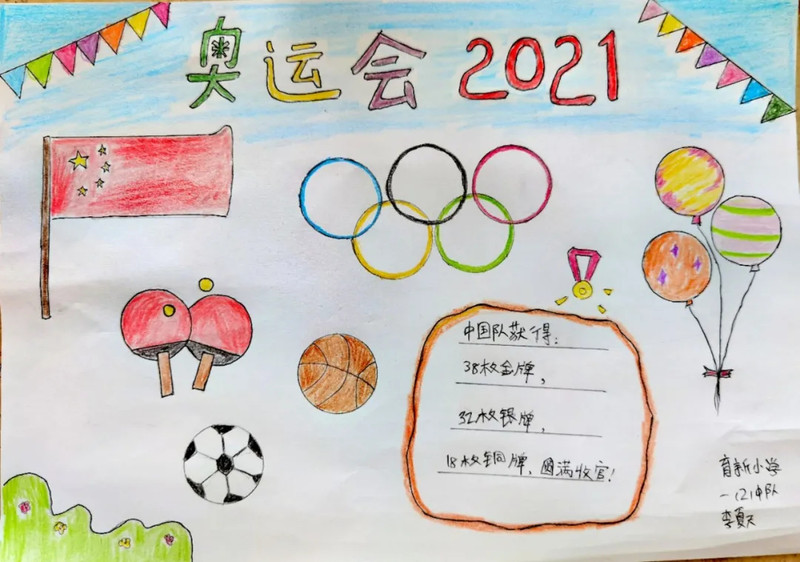 奥运会 2021
中国队获得:
38枚金牌,
32枚银牌,
18枚铜牌,圆满收官!
育新小学
一(2)中队